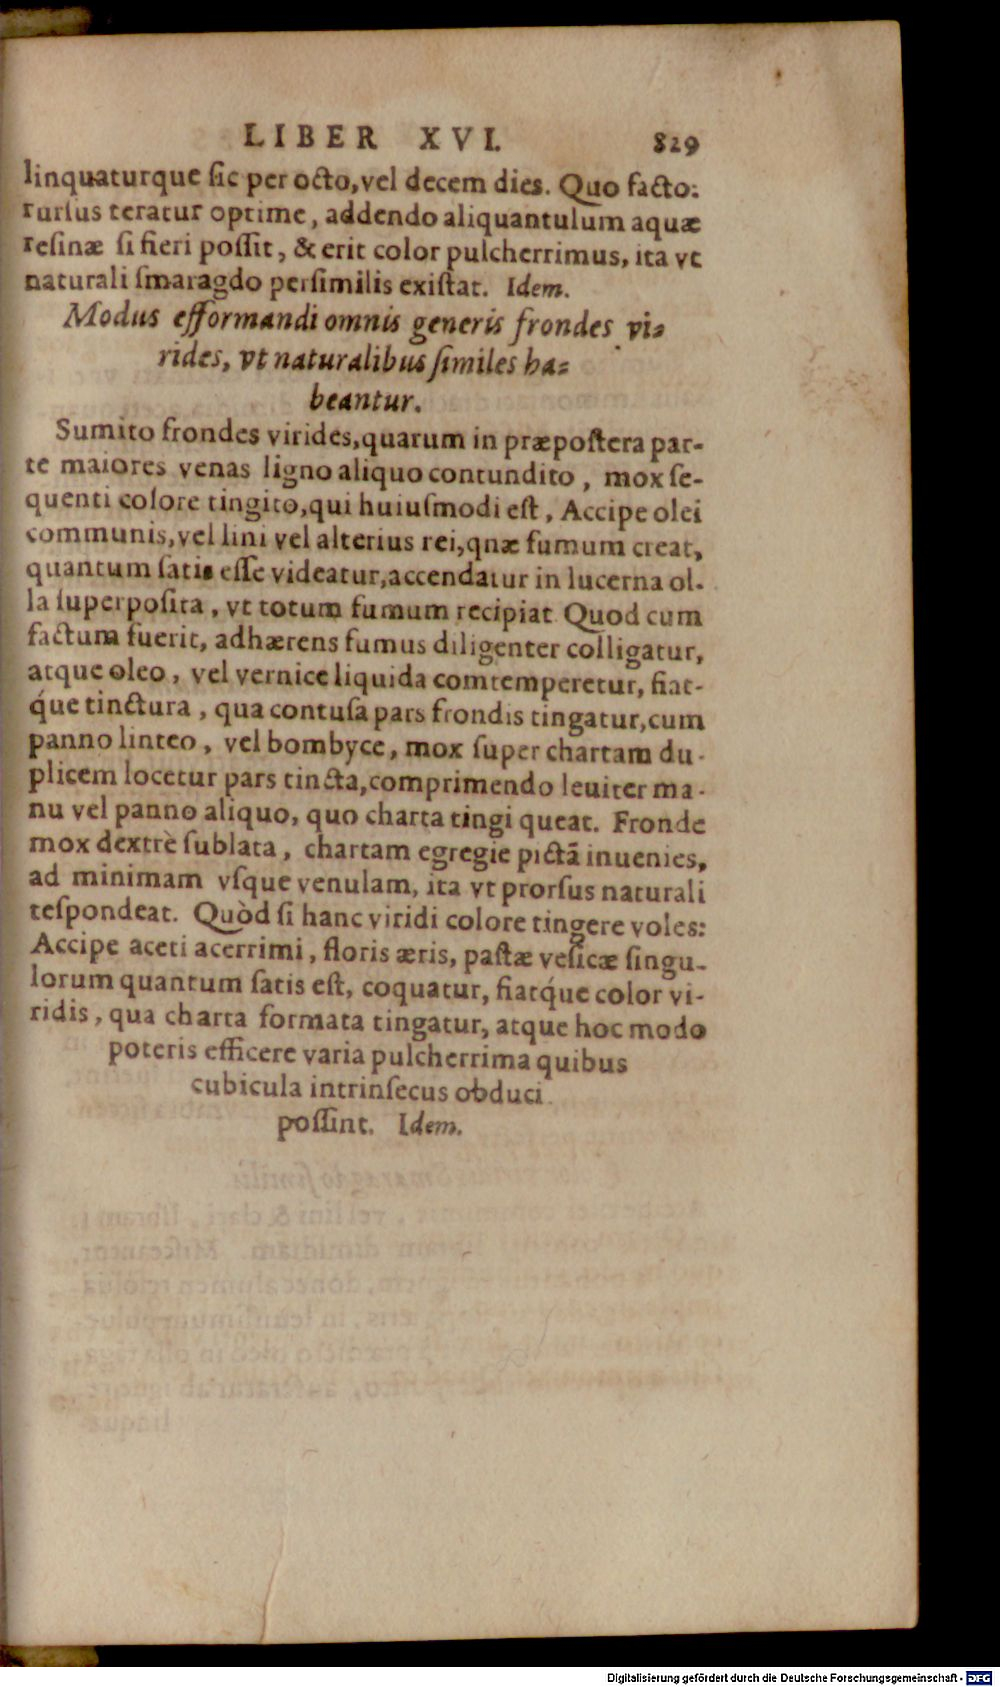 LIBER XVI. 829
linquaturque ſic per octo, vel decem dies. Quo facto:
rurſus teratur optime, addendo aliquantulum aquæ
reſinæ ſi fieri poſſit, & erit color pulcherrimus, ita vt
naturali ſmaragdo perſimilis exiſtat. Idem.
Modus efformandi omnis generis frondes vi-
rides, vt naturalibus ſimiles ha-
beantur.
Sumito frondes virides, quarum in præpoſtera par-
te maiores venas ligno aliquo contundito, mox ſe-
quenti colore tingito, qui huiuſmodi eſt, Accipe olei
communis, vel lini vel alterius rei, qnæ fumum creat,
quantum ſatis eſſe videatur, accendatur in lucerna ol-
la ſuperpoſita, vt totum fumum recipiat. Quod cum
factum fuerit, adhærens fumus diligenter colligatur,
atque oleo, vel vernice liquida comtemperetur, fiat-
q́ue tinctura, qua contuſa pars frondis tingatur, cum
panno linteo, vel bombyce, mox ſuper chartam du-
plicem locetur pars tincta, comprimendo leuiter ma-
nu vel panno aliquo, quo charta tingi queat. Fronde
mox dextrè ſublata, chartam egregie pictā inuenies,
ad minimam vſque venulam, ita vt prorſus naturali
reſpondeat. Quòd ſi hanc viridi colore tingere voles:
Accipe aceti acerrimi, floris æris, paſtæ veſicæ ſingu-
lorum quantum ſatis eſt, coquatur, fiatq́ue color vi-
ridis, qua charta formata tingatur, atque hoc modo
poteris efficere varia pulcherrima quibus
cubicula intrinſecus obduci
poſſint. Idem.
Digitalisierung gefördert durch die Deutsche Forschungsgemeinschaft - DFG